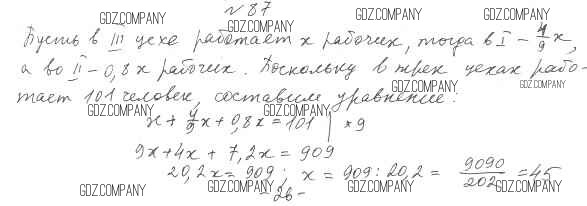 № 87
Пусть в III цехе работает x рабочих, тогда в I - 4/9 x,
а во II - 0,8x рабочих. Поскольку в трех цехах рабо-
тает 101 человек, составим уравнение:
x + 4/9 x + 0,8x = 101 | * 9
9x + 4x + 7,2x = 909
20,2x = 909; x = 909 : 20,2 = 9090/202 = 45
- 26 -
GDZ.COMPANY
GDZ.COMPANY
GDZ.COMPANY
GDZ.COMPANY
GDZ.COMPANY
GDZ.COMPANY
GDZ.COMPANY
GDZ.COMPANY
GDZ.COMPANY
GDZ.COMPANY
GDZ.COMPANY
GDZ.COMPANY
GDZ.COMPANY